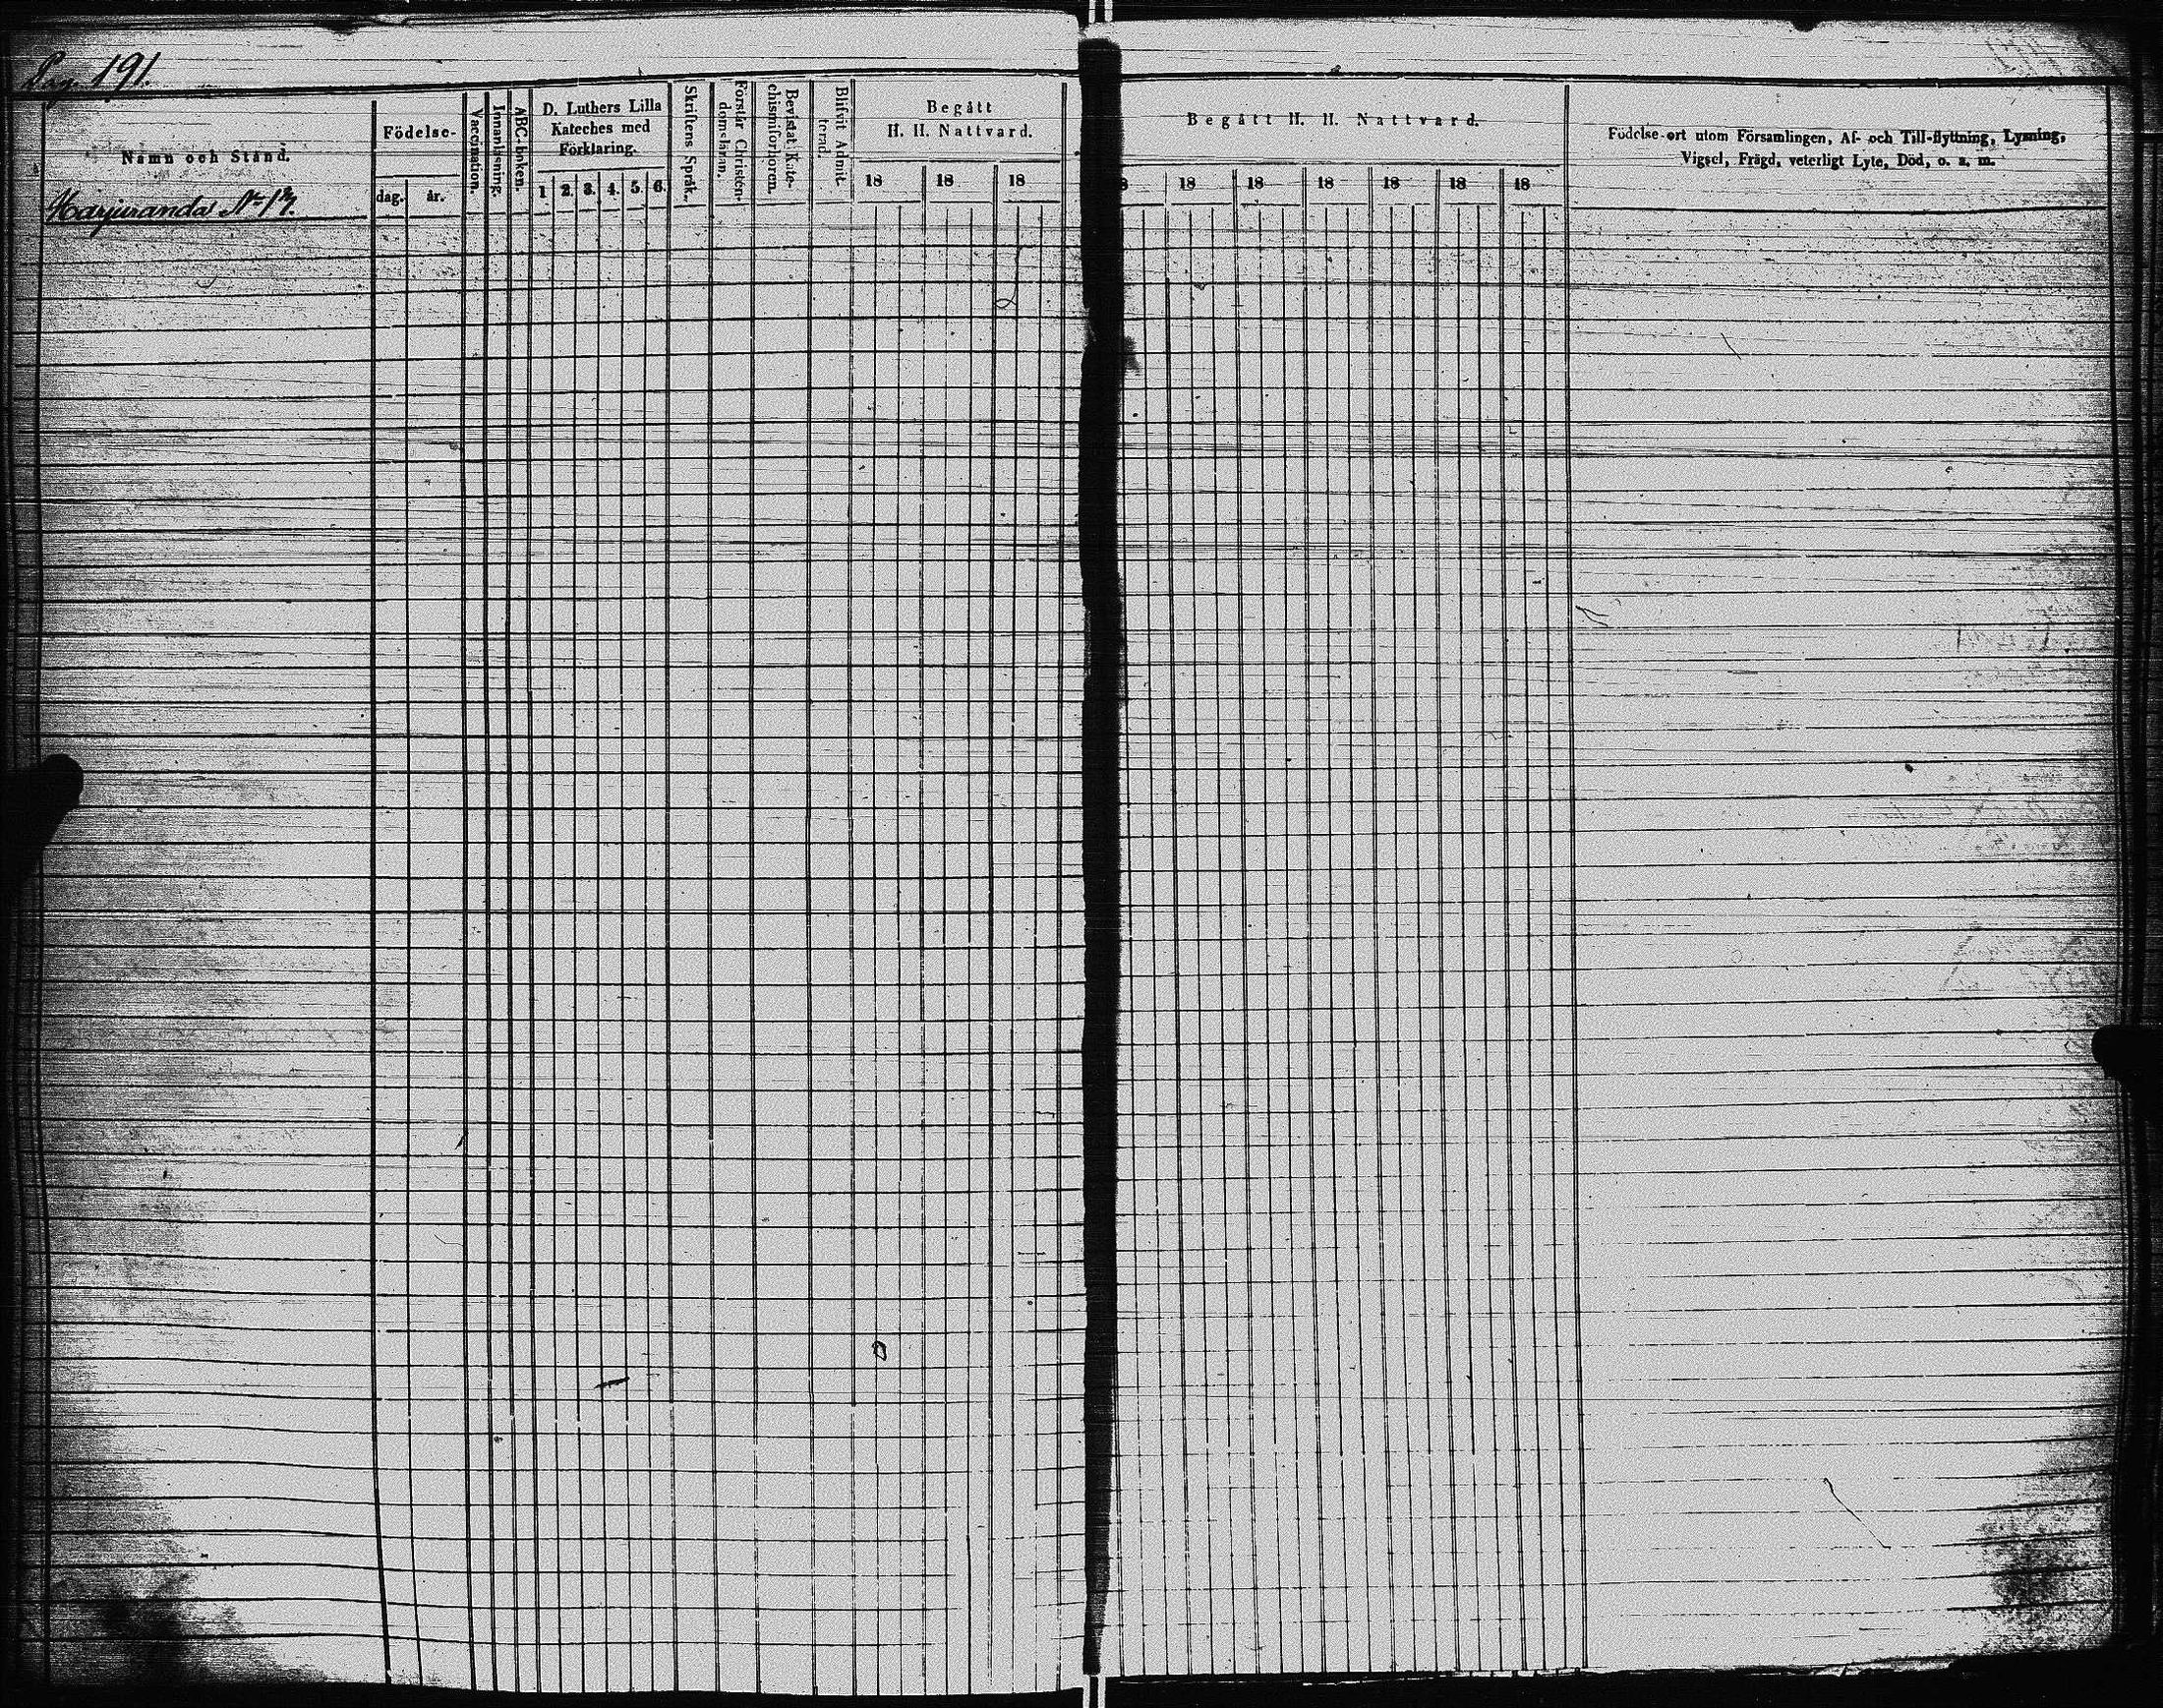 Pag. 191.
Namn och Stånd.
Harjuranda No 17.
Födelse-
dag. år.
Vaccination.
Innanläsning.
ABC-boken.
D. Luthers Lilla
Kateches med
Förklaring.
1 2. 3. 4. 5. 6.
Skriftens Språk.
Förstår Christen-
domsläran.
Bevistat Kate-
chismiförhören.
Blifvit Admit-
terad.
Begått
H. H. Nattvard.
18 18 18
Begått H. H. Nattvard.
18 18 18 18 18 18
Födelse-ort utom Församlingen, Af- och Till-flyttning, Lysning,
Vigsel, Frägd, veterligt Lyte, Död, o. s. m.